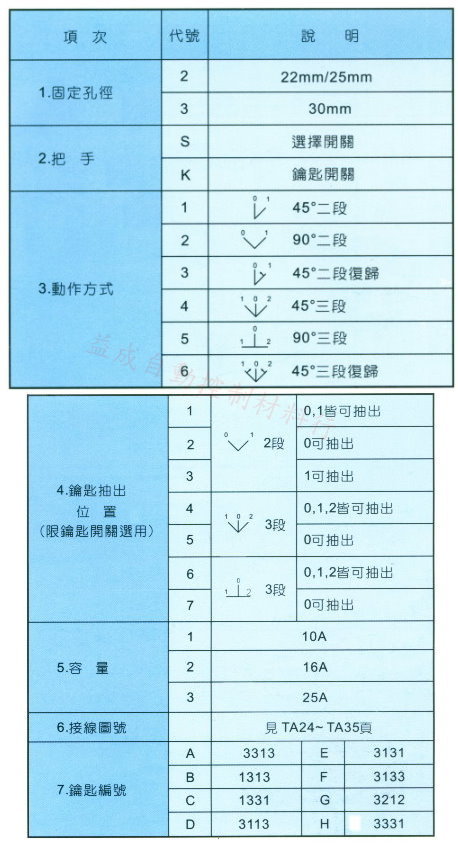 項 次 代號 說 明
1.固定孔徑 2 22mm/25mm
3 30mm
2.把 手 S 選擇開關
K 鑰匙開關
3.動作方式 1 0 1 45°二段
2 0 1 90°二段
3 0 1 45°二段復歸
4 1 0 2 45°三段
5 1 0 2 90°三段
6 1 0 2 45°三段復歸
益成自動控制材料行
4.鑰匙抽出
位 置
(限鑰匙開關選用)
1 0 1 2段 0,1皆可抽出
2 0可抽出
3 1可抽出
4 1 0 2 3段 0,1,2皆可抽出
5 0可抽出
6 1 0 2 3段 0,1,2皆可抽出
7 0可抽出
5.容 量 1 10A
2 16A
3 25A
6.接線圖號 見 TA24~ TA35頁
7.鑰匙編號 A 3313 E 3131
B 1313 F 3133
C 1331 G 3212
D 3113 H 3331